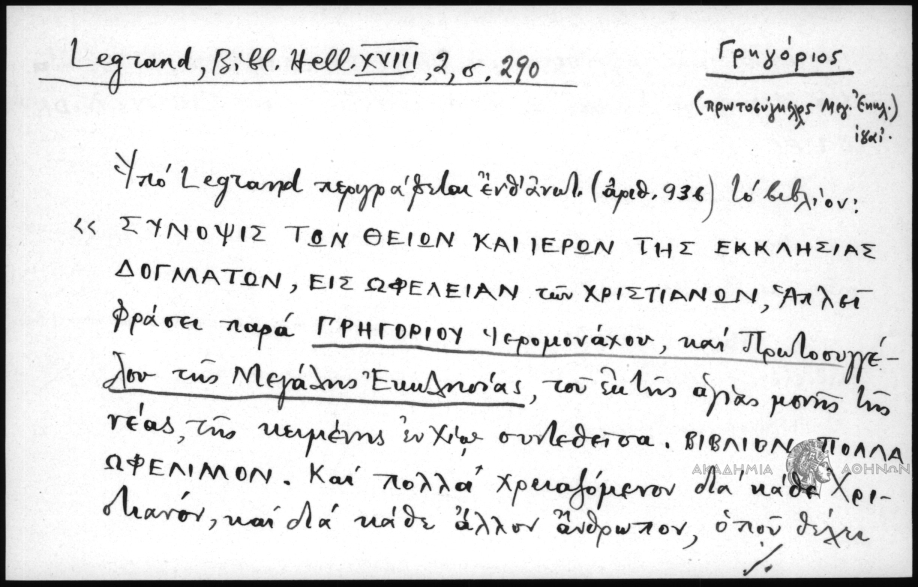 Legrand, Bibl. Hell. XVIII, 2, σ. 290
Γρηγόριος
(πρωτοσύγκελλος Μεγ. Ἐκκλ.)
Ὑπό Legrand περιγράφεται ἔνθ' ἀνωτ. (ἀριθ. 936) τό βιβλίον:
« ΣΥΝΟΨΙΣ ΤΩΝ ΘΕΙΩΝ ΚΑΙ ΙΕΡΩΝ ΤΗΣ ΕΚΚΛΗΣΙΑΣ
ΔΟΓΜΑΤΩΝ, ΕΙΣ ΩΦΕΛΕΙΑΝ τῶν ΧΡΙΣΤΙΑΝΩΝ, Ἁπλεῖ
φράσει παρά ΓΡΗΓΟΡΙΟΥ Ἱερομονάχου, καί Πρωτοσυγγέ-
λου τῆς Μεγάλης Ἐκκλησίας, τοῦ ἐκ τῆς ἁγίας μονῆς τῆς
νέας, τῆς κειμένης ἐν Χίῳ συντεθεῖσα. ΒΙΒΛΙΟΝ ΠΟΛΛΑ
ΩΦΕΛΙΜΟΝ. Καί πολλά χρειαζόμενον διά κάθε Χρι-
στιανόν, καί διά κάθε ἄλλον ἄνθρωπον, ὁποῦ θέλει
./.
ΑΚΑΔΗΜΙΑ ΑΘΗΝΩΝ